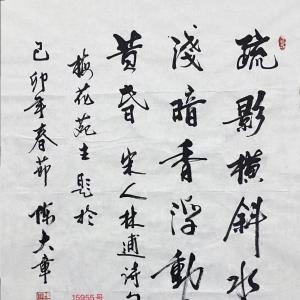 疏影橫斜水
淺暗香浮動
黄昏 宋人林逋诗句
梅花苑主题於
己卯年春节 陈大章
15955号